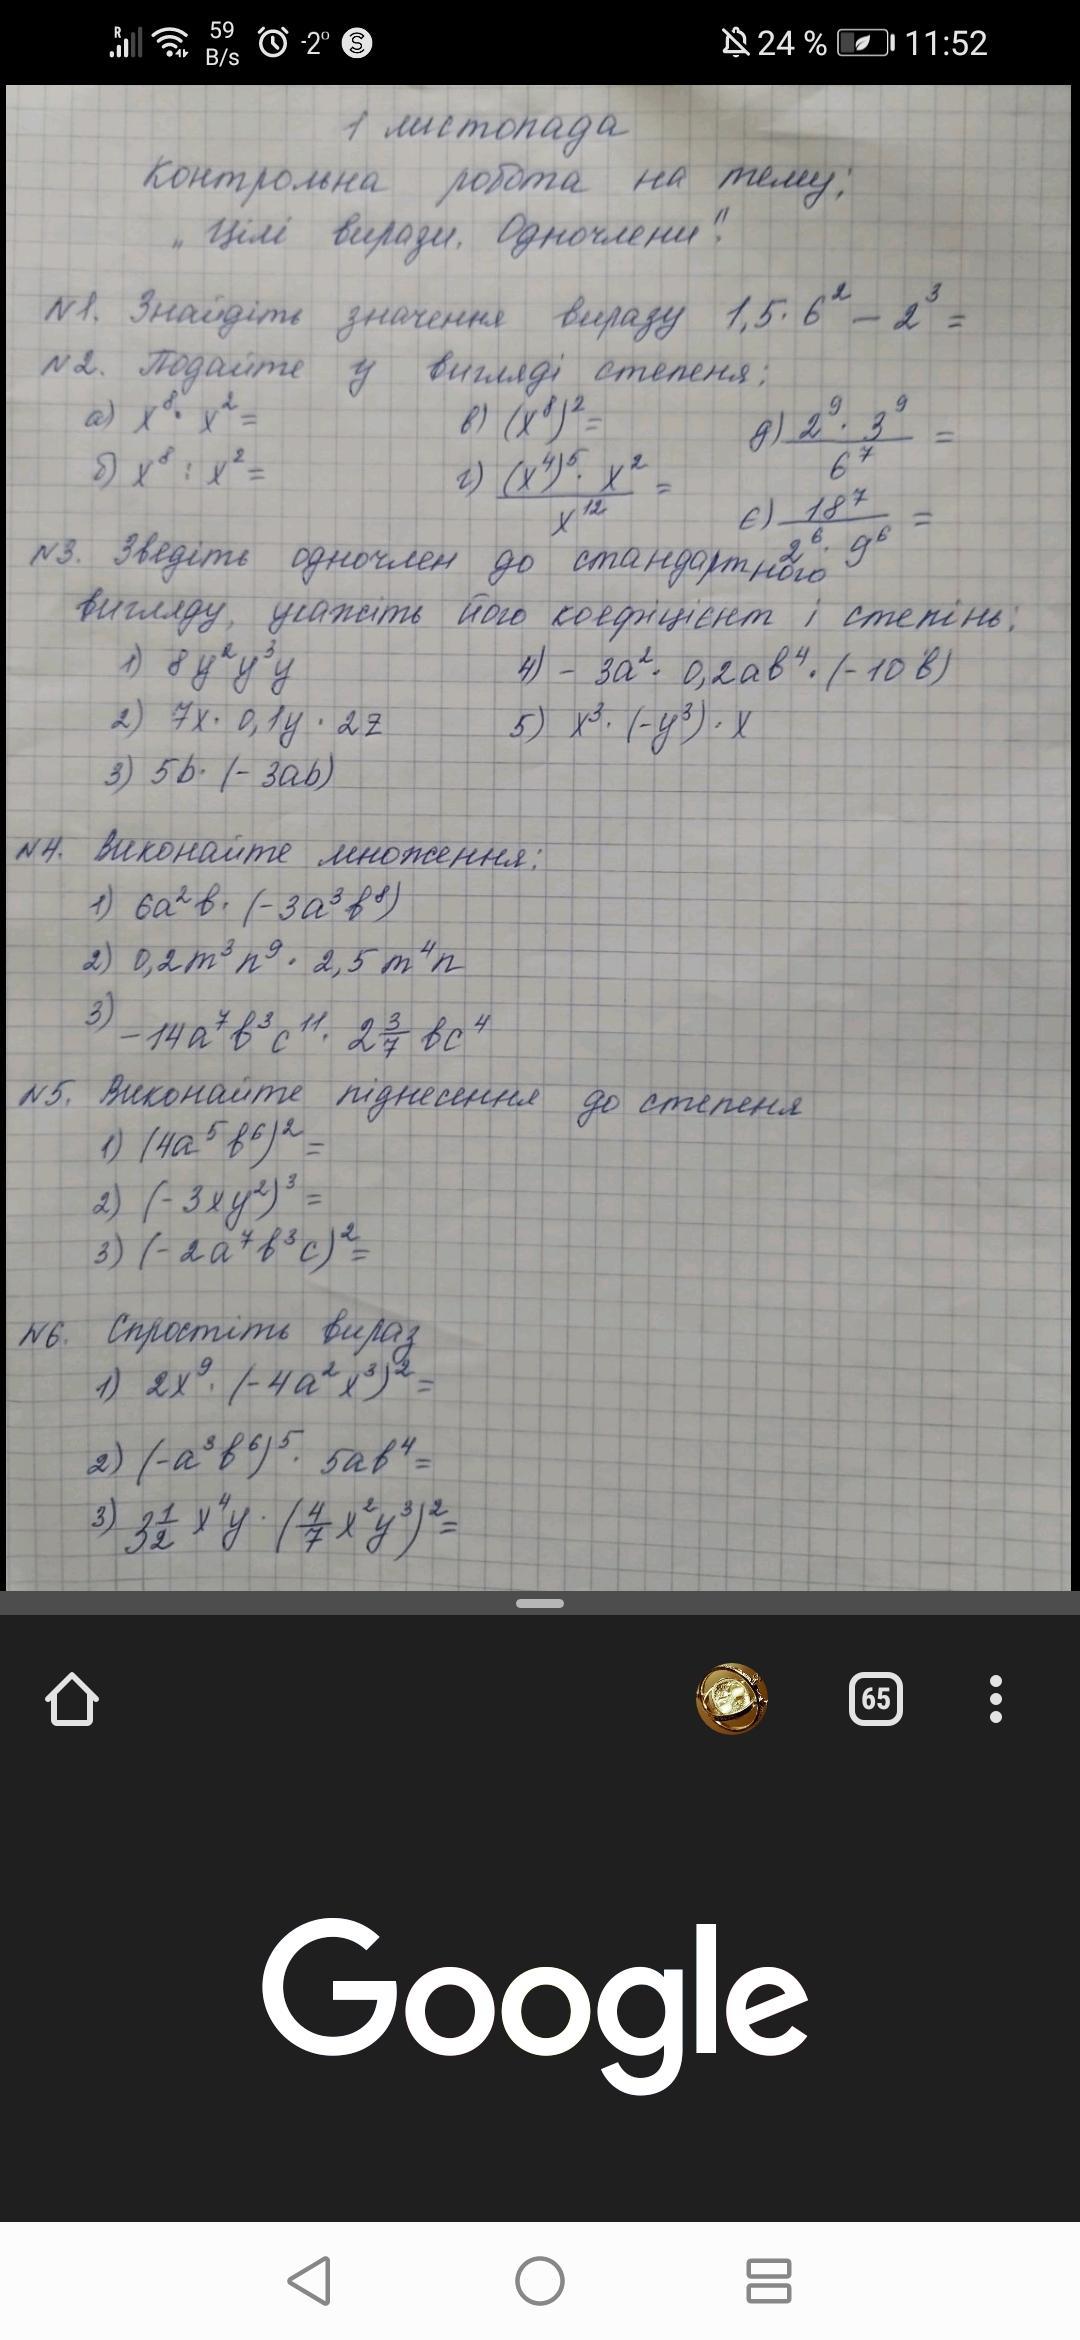 59
B/s
-2°
24 %
11:52
1 листопада
Контрольна робота на тему:
„Цілі вирази. Одночлени".
№1. Знайдіть значення виразу 1,5·6² − 2³ =
№2. Подайте у вигляді степеня:
а) x⁸· x² =
в) (x⁸)² =
д) 2⁹· 3⁹ / 6⁷ =
б) x⁸ : x² =
г) (x⁴)⁵· x² / x¹² =
є) 18⁷ / 2⁶· 9⁶ =
№3. Зведіть одночлен до стандартного
вигляду, укажіть його коефіцієнт і степінь:
1) 8y²y³y
4) − 3a²· 0,2ab⁴· (−10b)
2) 7x· 0,1y · 2z
5) x³· (−y³)· x
3) 5b· (− 3ab)
№4. Виконайте множення:
1) 6a²b· (−3a³b⁸)
2) 0,2m³n⁹ · 2,5m⁴n
3) −14a⁷b³c¹¹· 2 3/7 bc⁴
№5. Виконайте піднесення до степеня
1) (4a⁵b⁶)² =
2) (− 3xy²)³ =
3) (− 2a⁷b³c)² =
№6. Спростіть вираз
1) 2x⁹· (−4a²x³)² =
2) (−a³b⁶)⁵· 5ab⁴ =
3) 3 1/2 x⁴y · (4/7 x²y³)² =
65
Google